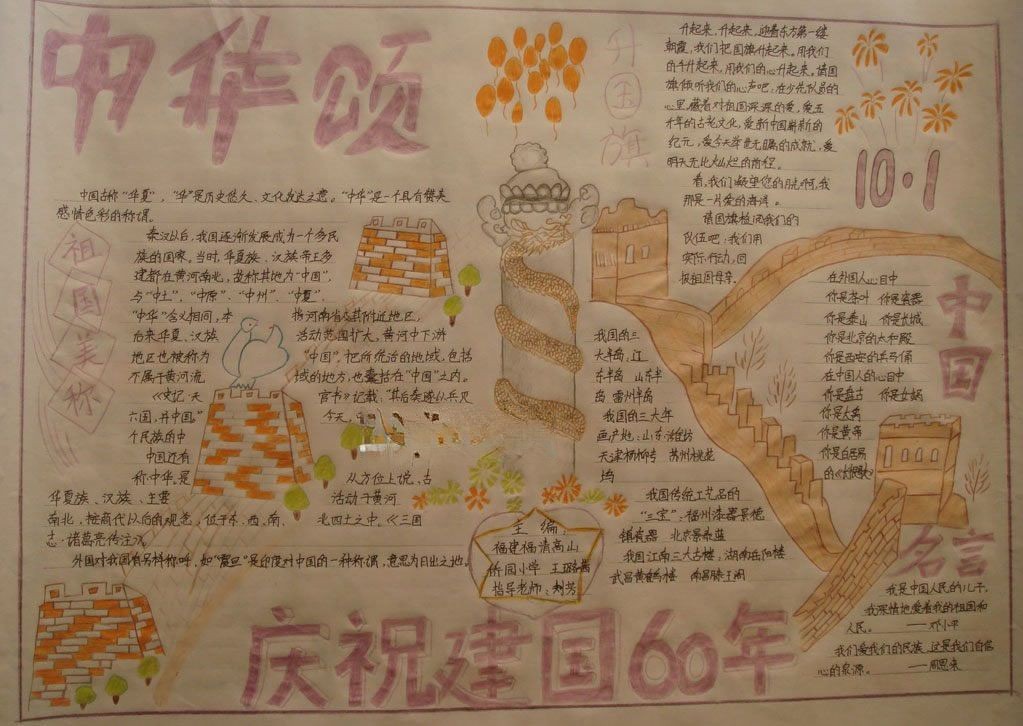 中华颂
中国古称“华夏”，“华”是历史悠久、文化发达之意。“中华”是一个具有赞美
感情色彩的称谓。
祖国美称
秦汉以后，我国逐渐发展成为一个多民
族的国家。当时，华夏族、汉族帝王多
建都在黄河南北，故称其地为“中国”，
与“中土”、“中原”、“中州”、“中夏”、
“中华”含义相同，本 指河南省及其附近地区，
后来华夏、汉族 活动范围扩大，黄河中下游
地区也被称为 “中国”，把所统治的地域，包括
不属于黄河流 域的地方，也囊括在“中国”之内。
《史记·天 官书》记载：“其后秦遂以兵灭
六国，并中国。” 今天，
个民族的中
中国还有
称。中华，是 从方位上说，古
华夏族、汉族、主要 活动于黄河
南北，按商代以后的观念，位于东、西、南、 北四土之中，《三国
志·诸葛亮传注》
外国对我国有另科称呼，如“震旦”是印度对中国的一种称谓，意思为日出之地。
升国旗
升起来，升起来，迎着东方第一缕
朝霞，我们把国旗升起来。用我们
的手升起来，用我们的心升起来。请国
旗倾听我们的心声吧：在少先队员的
心里，藏着对祖国深深的爱，爱五
千年的古老文化，爱新中国崭新的
纪元，爱今天举世无瞩的成就，爱
明天无比灿烂的前程。
看，我们凝望您的目光啊，我
那是一片爱的海洋。
请国旗检阅我们的
队伍吧：我们用
实际行动，回
报祖国母亲。
10·1
中国
在外国人心目中
你是茶叶 你是瓷器
你是泰山 你是长城
你是北京的太和殿
你是西安的兵马俑
在中国人的心目中
你是盘古 你是女娲
你是大禹
你是黄帝
你是白居易
的
我国的三
大半岛，辽
东半岛 山东半
岛 雷州半岛
我国的三大年
画产地：山东潍坊
天津杨柳青 苏州桃花
坞
我国传统工艺品的
“三宝”：福州漆器景德
镇瓷器 北京景泰蓝
我国江南三大古楼，湖南岳阳楼
武昌黄鹤楼 南昌滕王阁
名言
我是中国人民的儿子，
我深情地爱着我的祖国和
人民。 ——邓小平
我们爱我们的民族，这是我们自信
心的泉源。 ——周恩来
主编：
福建福清高山
侨园小学 王璐茜
指导老师：刘芳
庆祝建国60年